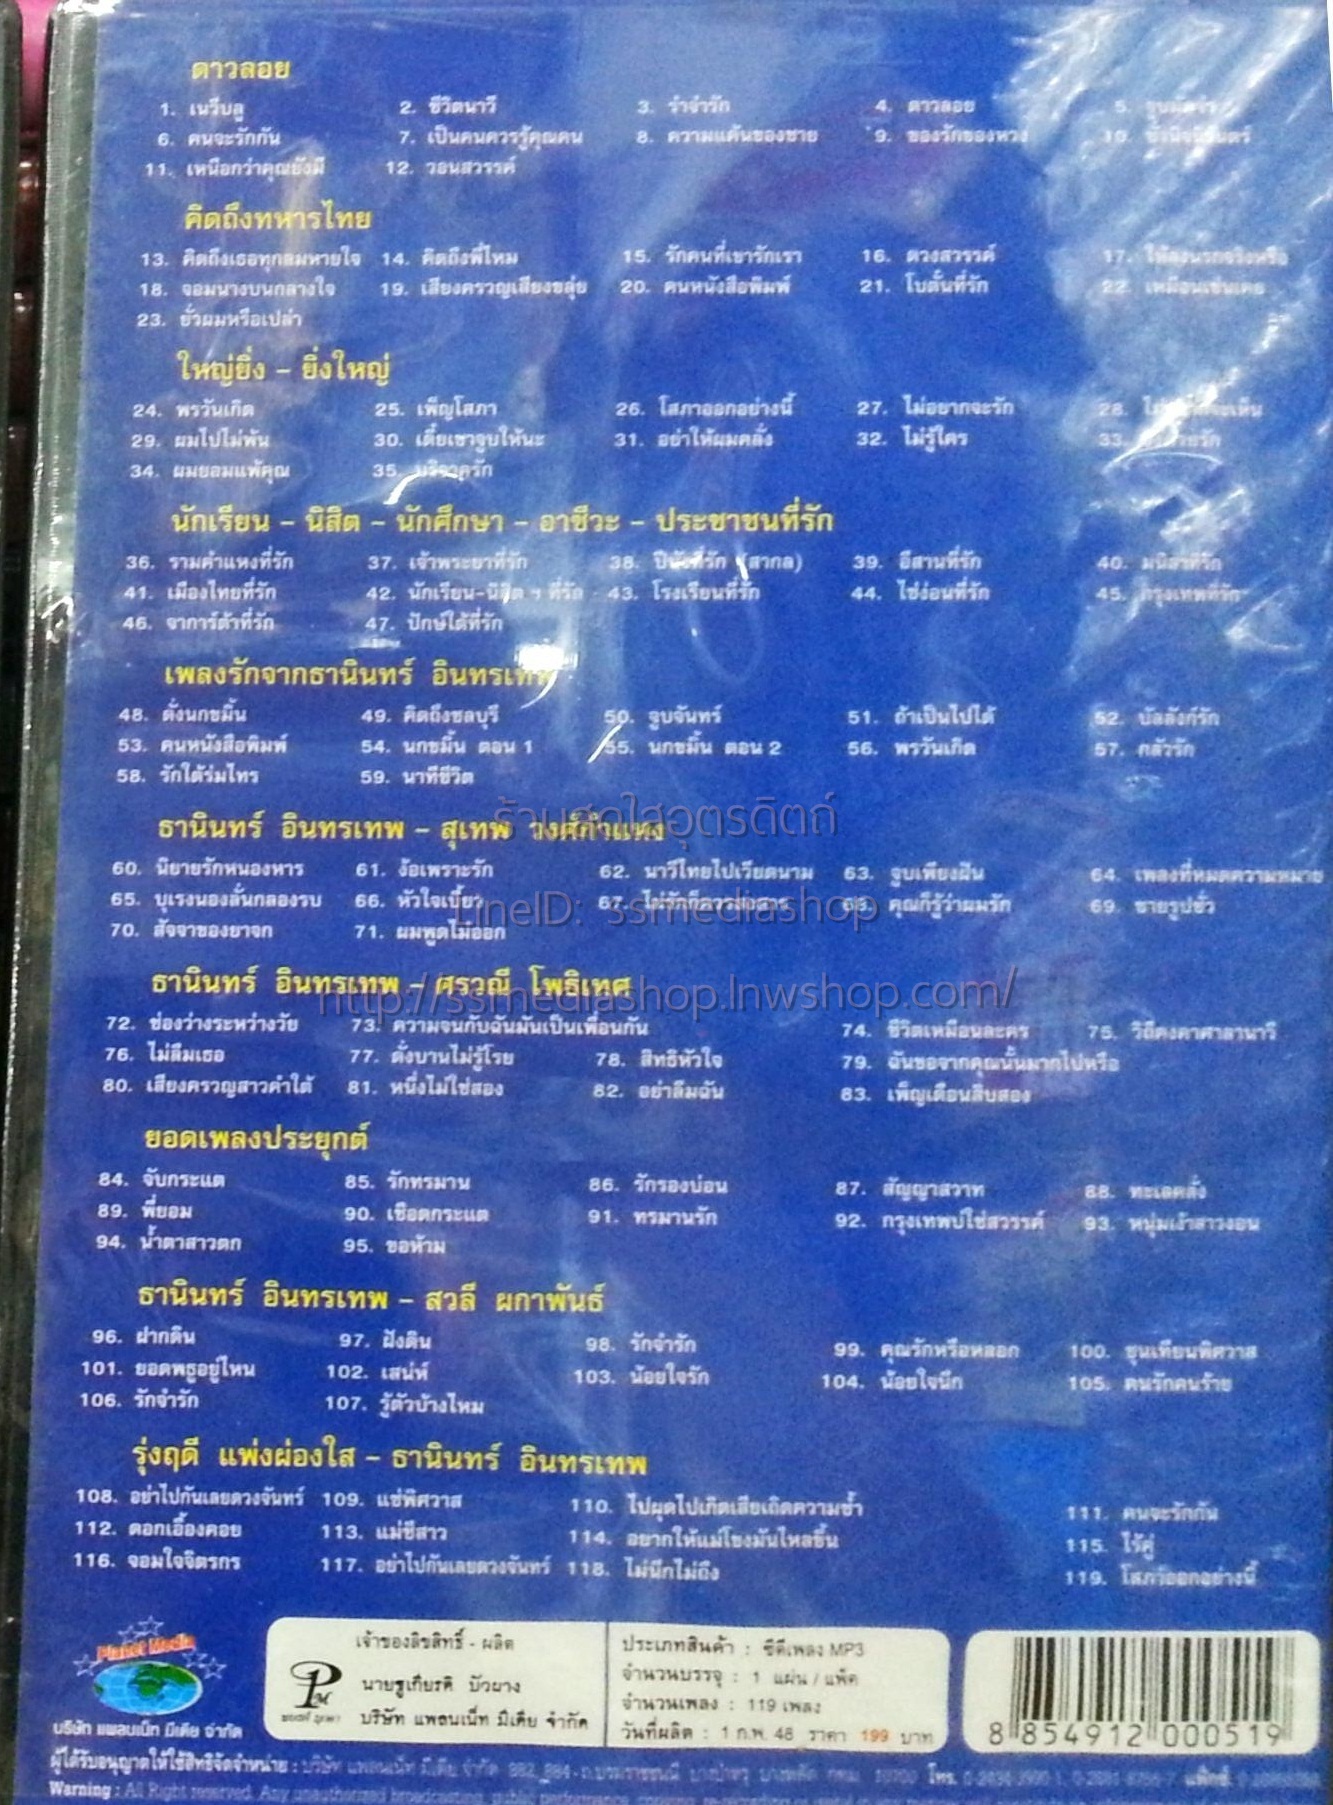 ดาวลอย
1. เนวีบลู 2. ชีวิตนาวี 3. รำจำรัก 4. ดาวลอย 5.
6. คนจะรักกัน 7. เป็นคนควรรู้คุณคน 8. ความแค้นของชาย 9. ของรักของหวง 10.
11. เหนือกว่าคุณยังมี 12. วอนสวรรค์
คิดถึงทหารไทย
13. คิดถึงเธอทุกลมหายใจ 14. คิดถึงพี่ไหม 15. รักคนที่เขารักเรา 16. ดวงสวรรค์ 17.
18. จอมนางบนกลางใจ 19. เสียงครวญเสียงขลุ่ย 20. คนหนังสือพิมพ์ 21. โบตั๋นที่รัก 22. เหมือนเช่นเคย
23. ยั่วผมหรือเปล่า
ใหญ่ยิ่ง - ยิ่งใหญ่
24. พรวันเกิด 25. เพ็ญโสภา 26. โสภาออกอย่างนี้ 27. ไม่อยากจะรัก 28.
29. ผมไปไม่พ้น 30. เดี๋ยเขาจูบให้นะ 31. อย่าให้ผมคลั่ง 32. ไม่รู้ใคร 33.
34. ผมยอมแพ้คุณ 35. บริจาครัก
นักเรียน - นิสิต - นักศึกษา - อาชีวะ - ประชาชนที่รัก
36. รามคำแหงที่รัก 37. เจ้าพระยาที่รัก 38. ปีนังที่รัก (สากล) 39. อีสานที่รัก 40. มนิลาที่รัก
41. เมืองไทยที่รัก 42. นักเรียน-นิสิต ฯ ที่รัก 43. โรงเรียนที่รัก 44. ไซ่ง่อนที่รัก 45. กรุงเทพที่รัก
46. จาการ์ต้าที่รัก 47. ปักษ์ใต้ที่รัก
เพลงรักจากธานินทร์ อินทรเทพ
48. ดั่งนกขมิ้น 49. คิดถึงชลบุรี 50. จูบจันทร์ 51. ถ้าเป็นไปได้ 52. บัลลังก์รัก
53. คนหนังสือพิมพ์ 54. นกขมิ้น ตอน 1 55. นกขมิ้น ตอน 2 56. พรวันเกิด 57. กลัวรัก
58. รักใต้ร่มไทร 59. นาทีชีวิต
ร้านสดใสอุตรดิตถ์
ธานินทร์ อินทรเทพ - สุเทพ วงศ์กำแหง
60. นิยายรักหนองหาร 61. ง้อเพราะรัก 62. นาวีไทยไปเวียดนาม 63. จูบเพียงฝัน 64. เพลงที่หมดความหมาย
65. บุเรงนองลั่นกลองรบ 66. หัวใจเบี้ยว 67. ไม่รักก็ควรสงสาร 68. คุณก็รู้ว่าผมรัก 69. ชายรูปชั่ว
LineID: ssmediashop
70. สัจจาของยาจก 71. ผมพูดไม่ออก
ธานินทร์ อินทรเทพ - ศรวณี โพธิเทศ
http://ssmediashop.lnwshop.com/
72. ช่องว่างระหว่างวัย 73. ความจนกับฉันมันเป็นเพื่อนกัน 74. ชีวิตเหมือนละคร 75. วิถีคงคาศาลานาวี
76. ไม่ลืมเธอ 77. ดั่งบานไม่รู้โรย 78. สิทธิหัวใจ 79. ฉันขอจากคุณนั้นมากไปหรือ
80. เสียงครวญสาวคำใต้ 81. หนึ่งไม่ใช่สอง 82. อย่าลืมฉัน 83. เพ็ญเดือนสิบสอง
ยอดเพลงประยุกต์
84. จับกระแต 85. รักทรมาน 86. รักรองบ่อน 87. สัญญาสวาท 88. ทะเลคลั่ง
89. พี่ยอม 90. เชือดกระแต 91. ทรมานรัก 92. กรุงเทพบ่ใช่สวรรค์ 93. หนุ่มเง้าสาวงอน
94. น้ำตาสาวตก 95. ขอห้าม
ธานินทร์ อินทรเทพ - สวลี ผกาพันธ์
96. ฝากดิน 97. ฝังดิน 98. รักจำรัก 99. คุณรักหรือหลอก 100. ขุนเทียนพิศวาส
101. ยอดพธูอยู่ไหน 102. เสน่ห์ 103. น้อยใจรัก 104. น้อยใจนึก 105. คนรักคนร้าย
106. รักจำรัก 107. รู้ตัวบ้างไหม
รุ่งฤดี แพ่งผ่องใส - ธานินทร์ อินทรเทพ
108. อย่าไปกันเลยดวงจันทร์ 109. แซ่พิศวาส 110. ไปผุดไปเกิดเสียเถิดความช้ำ 111. คนจะรักกัน
112. ดอกเอื้องคอย 113. แม่ชีสาว 114. อยากให้แม่โขงมันไหลขึ้น 115. ไร้คู่
116. จอมใจจิตรกร 117. อย่าไปกันเลยดวงจันทร์ 118. ไม่นึกไม่ถึง 119. โสภาออกอย่างนี้
Planet Media
บริษัท แพลนเน็ท มีเดีย จำกัด
เจ้าของลิขสิทธิ์ - ผลิต
นายชูเกียรติ บัวผาง
บริษัท แพลนเน็ท มีเดีย จำกัด
ประเภทสินค้า : ซีดีเพลง MP3
จำนวนบรรจุ : 1 แผ่น / แพ็ค
จำนวนเพลง : 119 เพลง
วันที่ผลิต : 1 ก.พ. 48 ราคา 199 บาท
8 854912 000519
ผู้ได้รับอนุญาตให้ใช้สิทธิจัดจำหน่าย : บริษัท แพลนเน็ท มีเดีย จำกัด 882, 884 ถ.บรมราชชนนี
Warning : All Right reserved. Any unauthorized broadcasting, public performance,